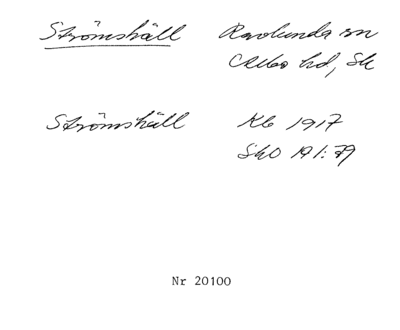 Strömshäll Ravlunda sn
Albo hd, Sk
Strömshäll Kb 1917
SkO 191:79
Nr 20100